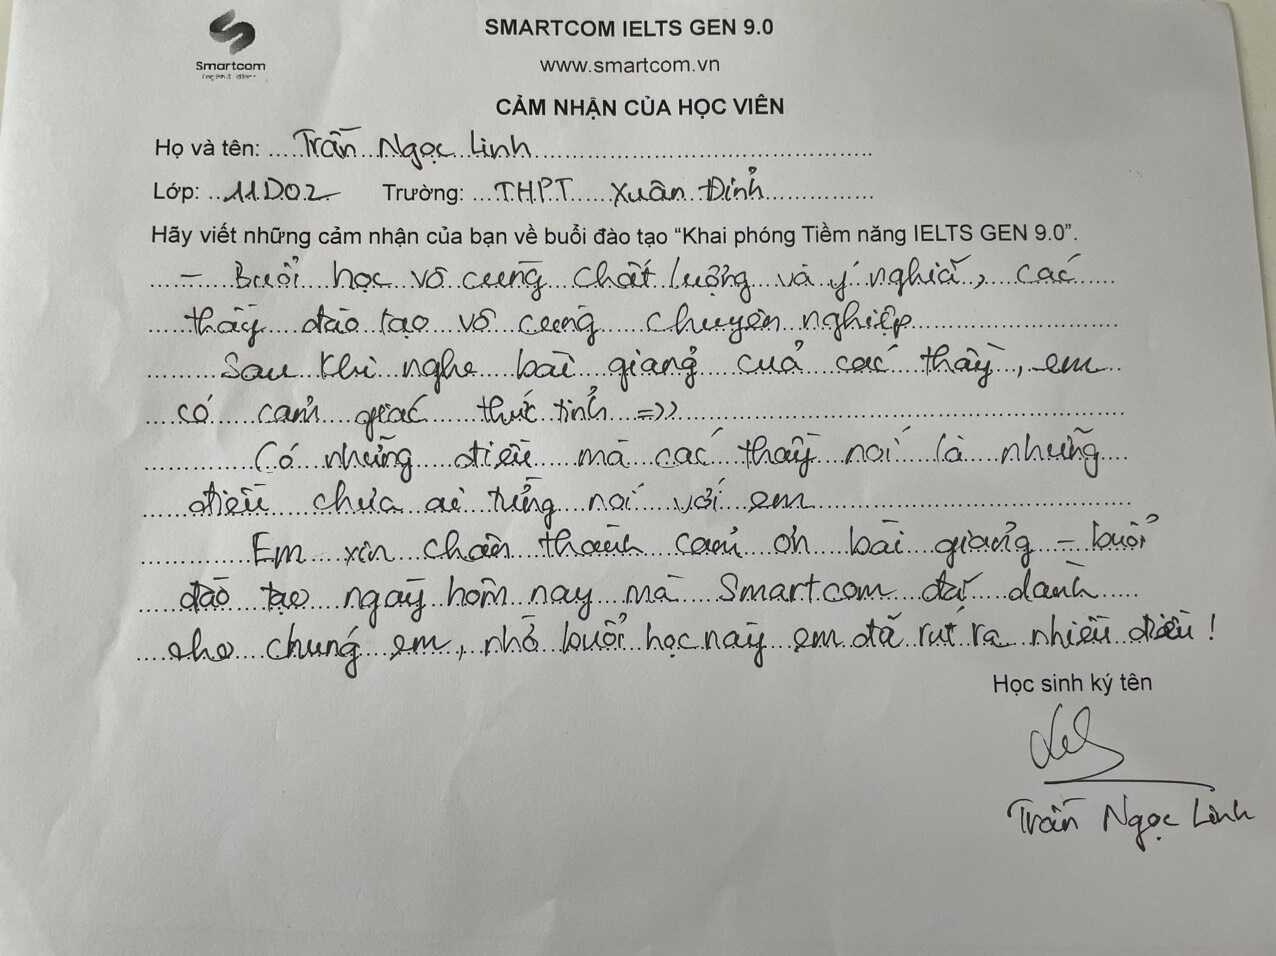 Smartcom
SMARTCOM IELTS GEN 9.0
www.smartcom.vn
CẢM NHẬN CỦA HỌC VIÊN
Họ và tên: Trần Ngọc Linh
Lớp: 11D02 Trường: THPT Xuân Đỉnh
Hãy viết những cảm nhận của bạn về buổi đào tạo “Khai phóng Tiềm năng IELTS GEN 9.0”.
- Buổi học vô cùng chất lượng và ý nghĩa, các
thầy đào tạo vô cùng chuyên nghiệp
Sau khi nghe bài giảng của các thầy, em
có cảm giác thức tỉnh =))
Có những điều mà các thầy nói là những
điều chưa ai từng nói với em
Em xin chân thành cảm ơn bài giảng - buổi
đào tạo ngày hôm nay mà Smartcom đã dành
cho chúng em, nhờ buổi học này em đã rút ra nhiều điều!
Học sinh ký tên
Trần Ngọc Linh